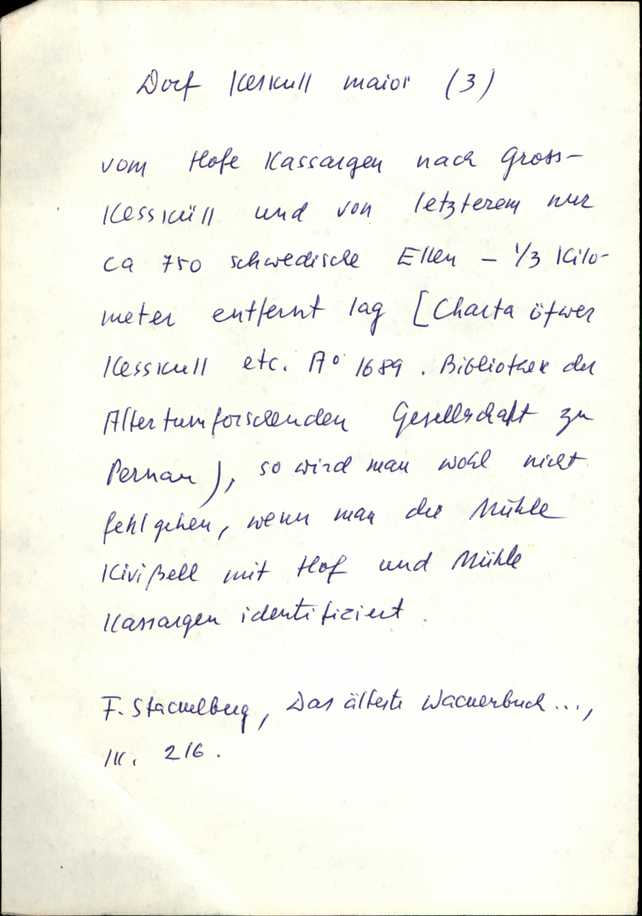 Dorf Keskull maior (3)
vom Hofe Kassargen nach Gross-
Kesskull und von letzterem nur
ca 750 schwedische Ellen – 1/3 Kilo-
meter entfernt lag [Charta öfwer
Kesskull etc. A° 1689. Bibliothek der
Altertumforschenden Gesellschaft zu
Pernau), so wird man wohl nicht
fehlgehen, wenn man die Mühle
Kivißell mit Hof und Mühle
Kassargen identifiziert.
F. Stackelberg, Das älteste Wackenbuch...,
lk. 216.